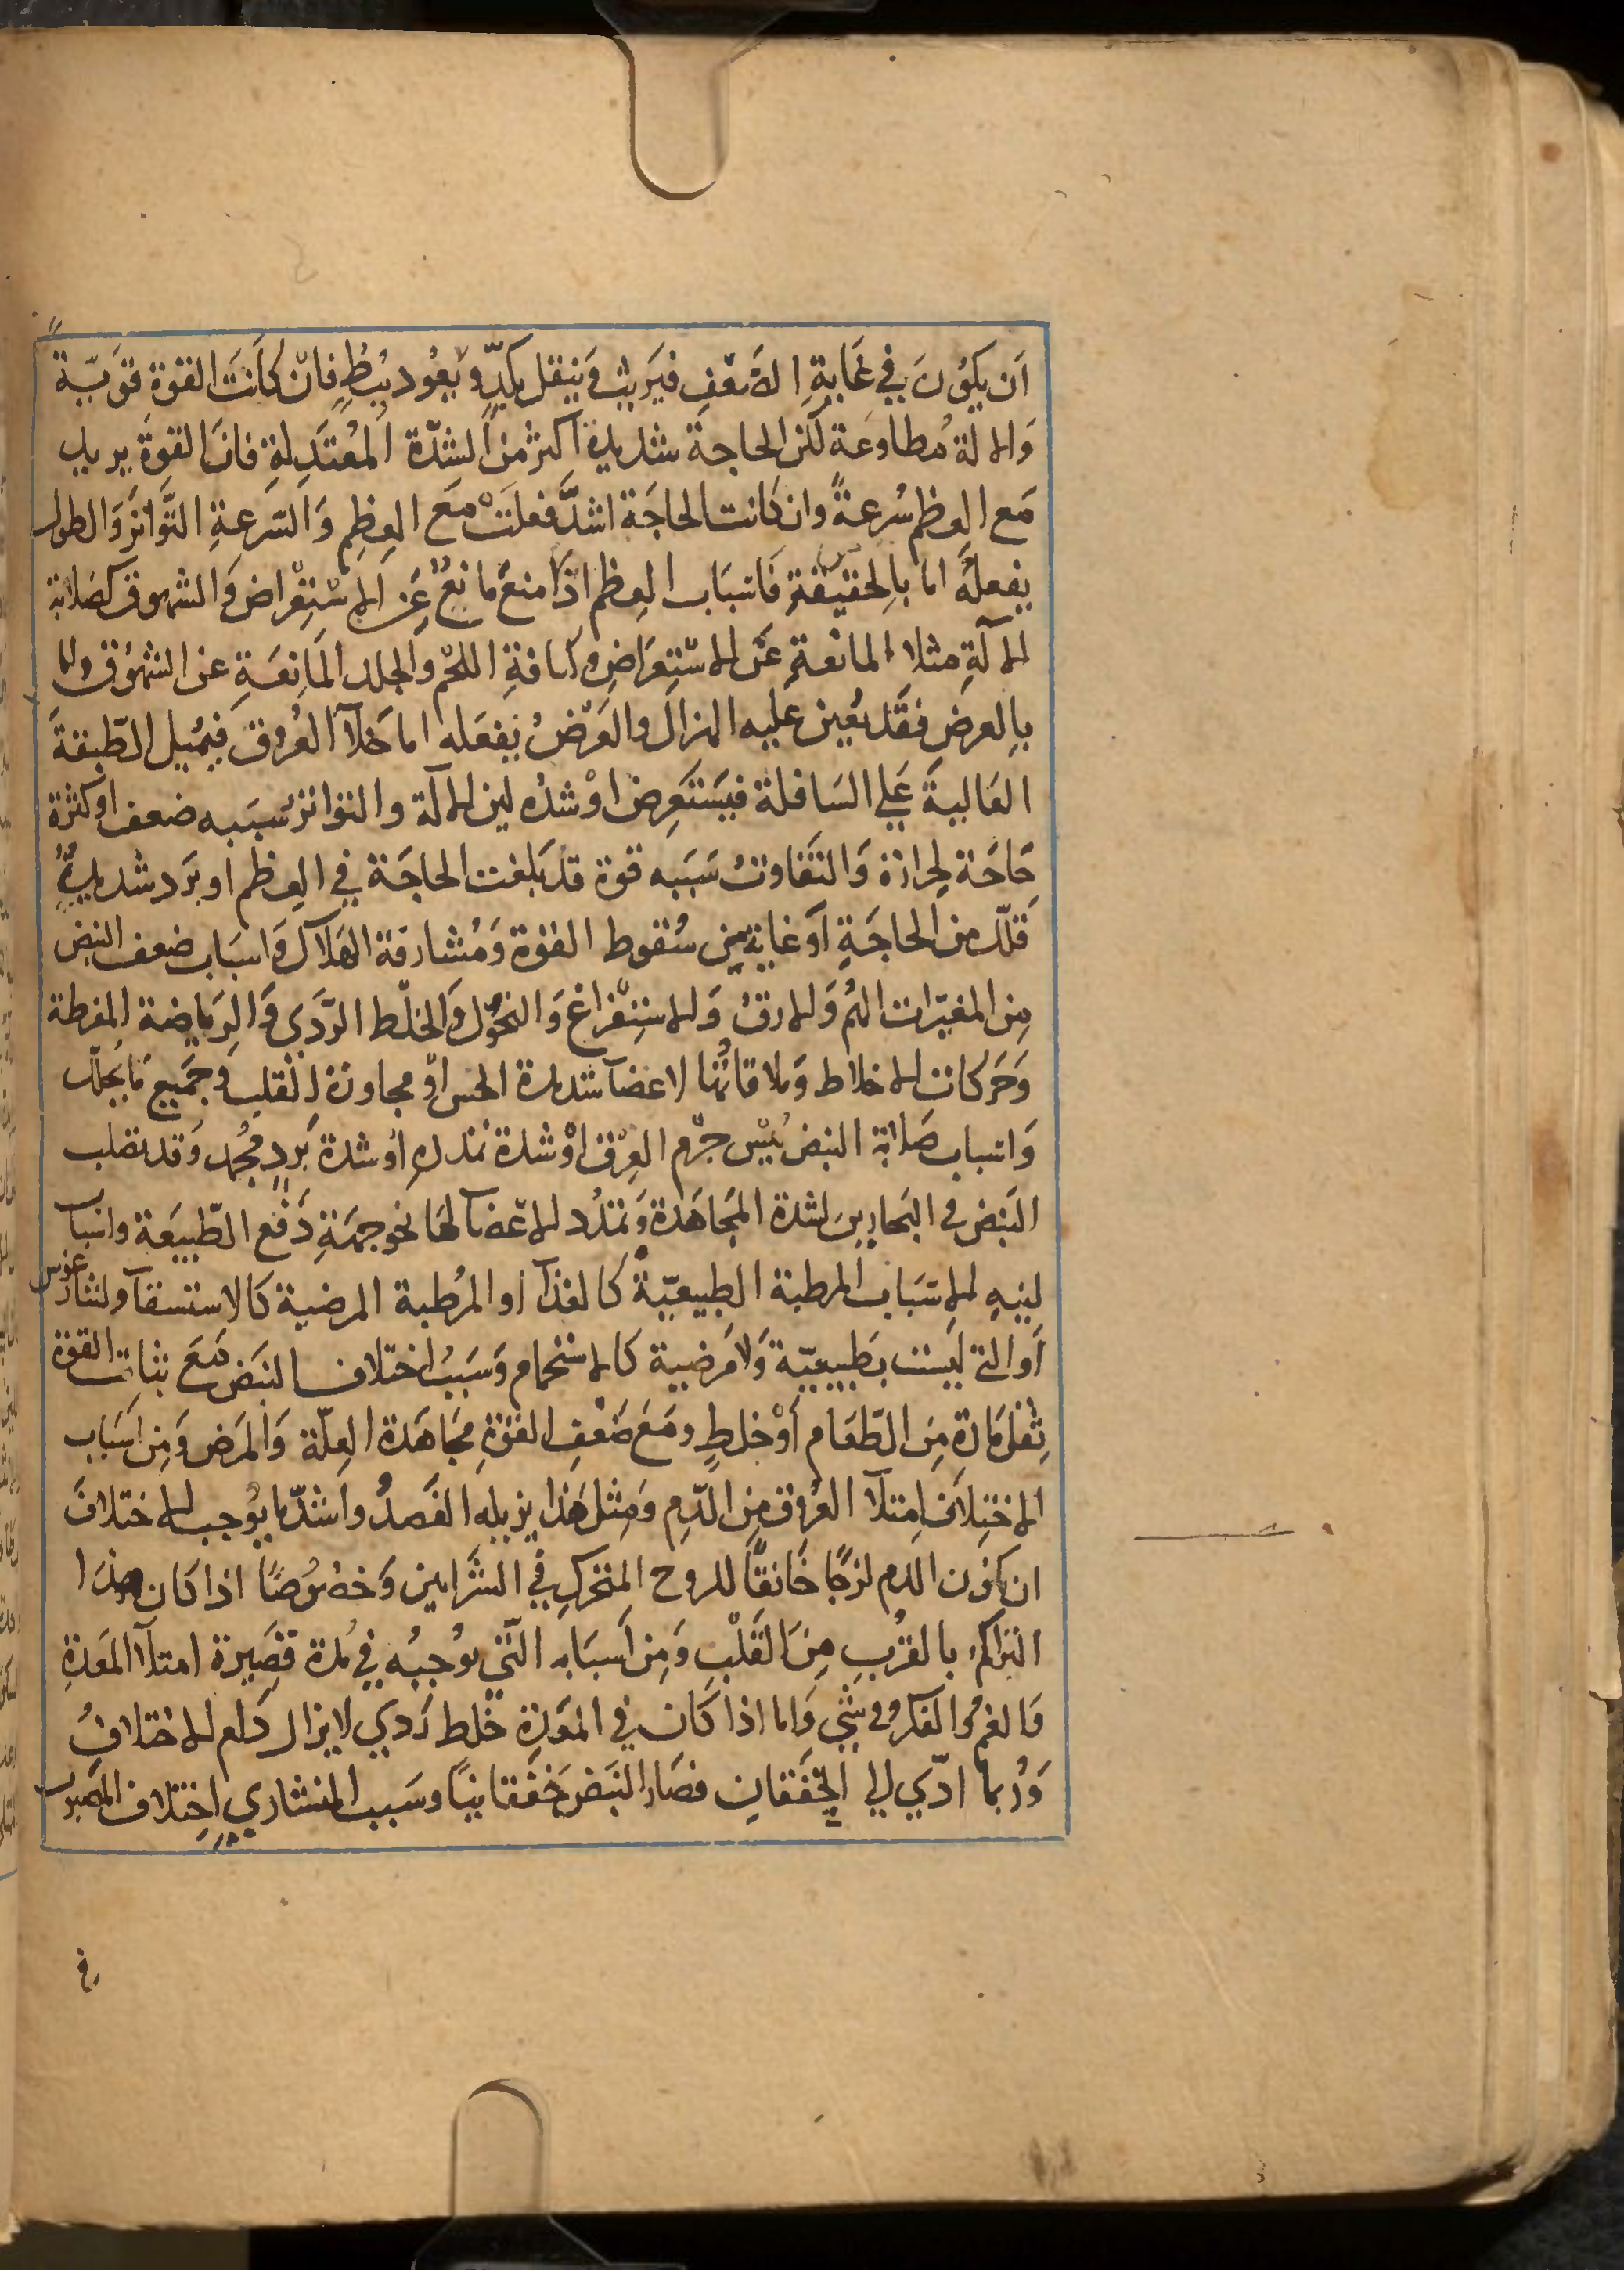 اَن يكوُنَ في غَايةِ الضَعْفِ فيَريث وَينقل بكدٍّ ويَعُود ببُطءٍ فانْ كاَنَت القوّة قوَيّة
وَالالة مُطاوعَة لكن الحاجة شديدة اكثر منَ الشدّة المُعْتَدِلةِ فانَ القوةَ يزيد
مَع العِظم سُرعةً وان كانت الحاجَة اشدَّ فعلَتْ مَع العِظِم وَالسّرعةِ التَّواترَ وَالطول
يفعلهُ اما بِالحقيقةِ فَاسبَاب العِظم اذَا منعَ مانعٌ عَن الاسْتِعْراض وَالشهوق كصَلابة
الآلةِ مثلا المانعةِ عَن الاسْتِعرَاضِ وكثافةِ اللحْم والجلد المَانِعَةِ عن الشهُوق واما
بِالعرضِ فقَد يعُين عليه الهزال والعَرْضُ يَفعَله اما خلآ العُروق فيمُيل الطّبقةَ
العَاليةَ عَلي السَافلة فيَستَعرِض اوْ شدُه لين الآلة والتواتر سَببه ضعف او كثرة
حَاجَة لحِرارة وَالتفَاوتُ سَبَبه قوة قد بَلغت الحاجَة في العِظم او بَرد شديدٌ
قلّل من الحاجَةِ اَوْ غاية مِن سُقوط القوّة وَمُشارفة الهَلاك وَاسبَاب ضعف النبض
مِن المغيّرات الهُم وَالارقُ وَالاستِفْراغ وَالنحُوُل وَالخلط الرّدَي وَالرِيَاضة المفرطة
وَحَركات الاخلاط وَملاقاتُها لاعضآ شديدة الحس اوْ مجاورة للقلب وجَمَيع مَا يُحلّل
وَاسباب صَلابة النبض يُبْس جرْم العِرْق اوْ شدة تمدده اوْ شدة بَردٍ مجُمد وَقد يَصلب
النَبض في البَحارين لشدة المجَاهَدة وَتمدُد الاعْضا لهَا نحو جهَةِ دَفْع الطّبيعَة واسباب
لينهِ الاسَبَاب المرطبة الطبيعيّة كالغذآ او المرُطبة المرضية كَالاستسقآ وليثارغوس
اَو التي ليَست بطَبيعيّة وَلا مَرضيية كالاستحمام وَسَببُ اختلاف النبَض مَع ثبات القوّة
ثِقلُ مَادة مِنَ الطّعَام اَوْ خلطٍ ومَعَ ضَعْفِ القوّةِ مجَاهَدة العِلّة وَالمَرض وَمِن اَسَبَاب
الاختِلاَف امِتلآ العُروق مِن الدَّم وَمِثل هَذا يزيله الفَصدُ واَشدّ مَا يوُجب الاختلافَ
ان يكوُن الدم لزجًا خَانقًا للروح المتحركِ في الشَرايين وَخصُوصًا اذا كَان هذَا
التراكمُ بالقُربِ مِنَ القَلْبِ وَمِن اَسبَابه التَّي يوُجبُه في مُدة قصَيرة امتلآ المعَدةِ
وَالغم والفكر في شيٍ وَاما اذا كَان في المعَدَة خلط رَدي لا يزال دَام الاختلافُ
وَرُبما ادّي الي الخَفقان فصَار النبَض خَفقَانيًا وسَبب المنشاري اختِلاف المَصبوب
في